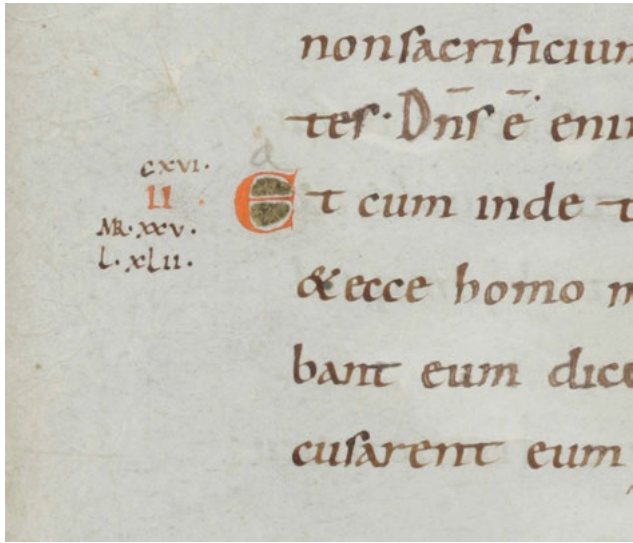 non sacrificium
tes· Dn̄s ē enim
a
cxvi·
II
MR· xxv·
L· xlii·
Et cum inde t
& ecce homo m
bant eum dice
cusarent eum